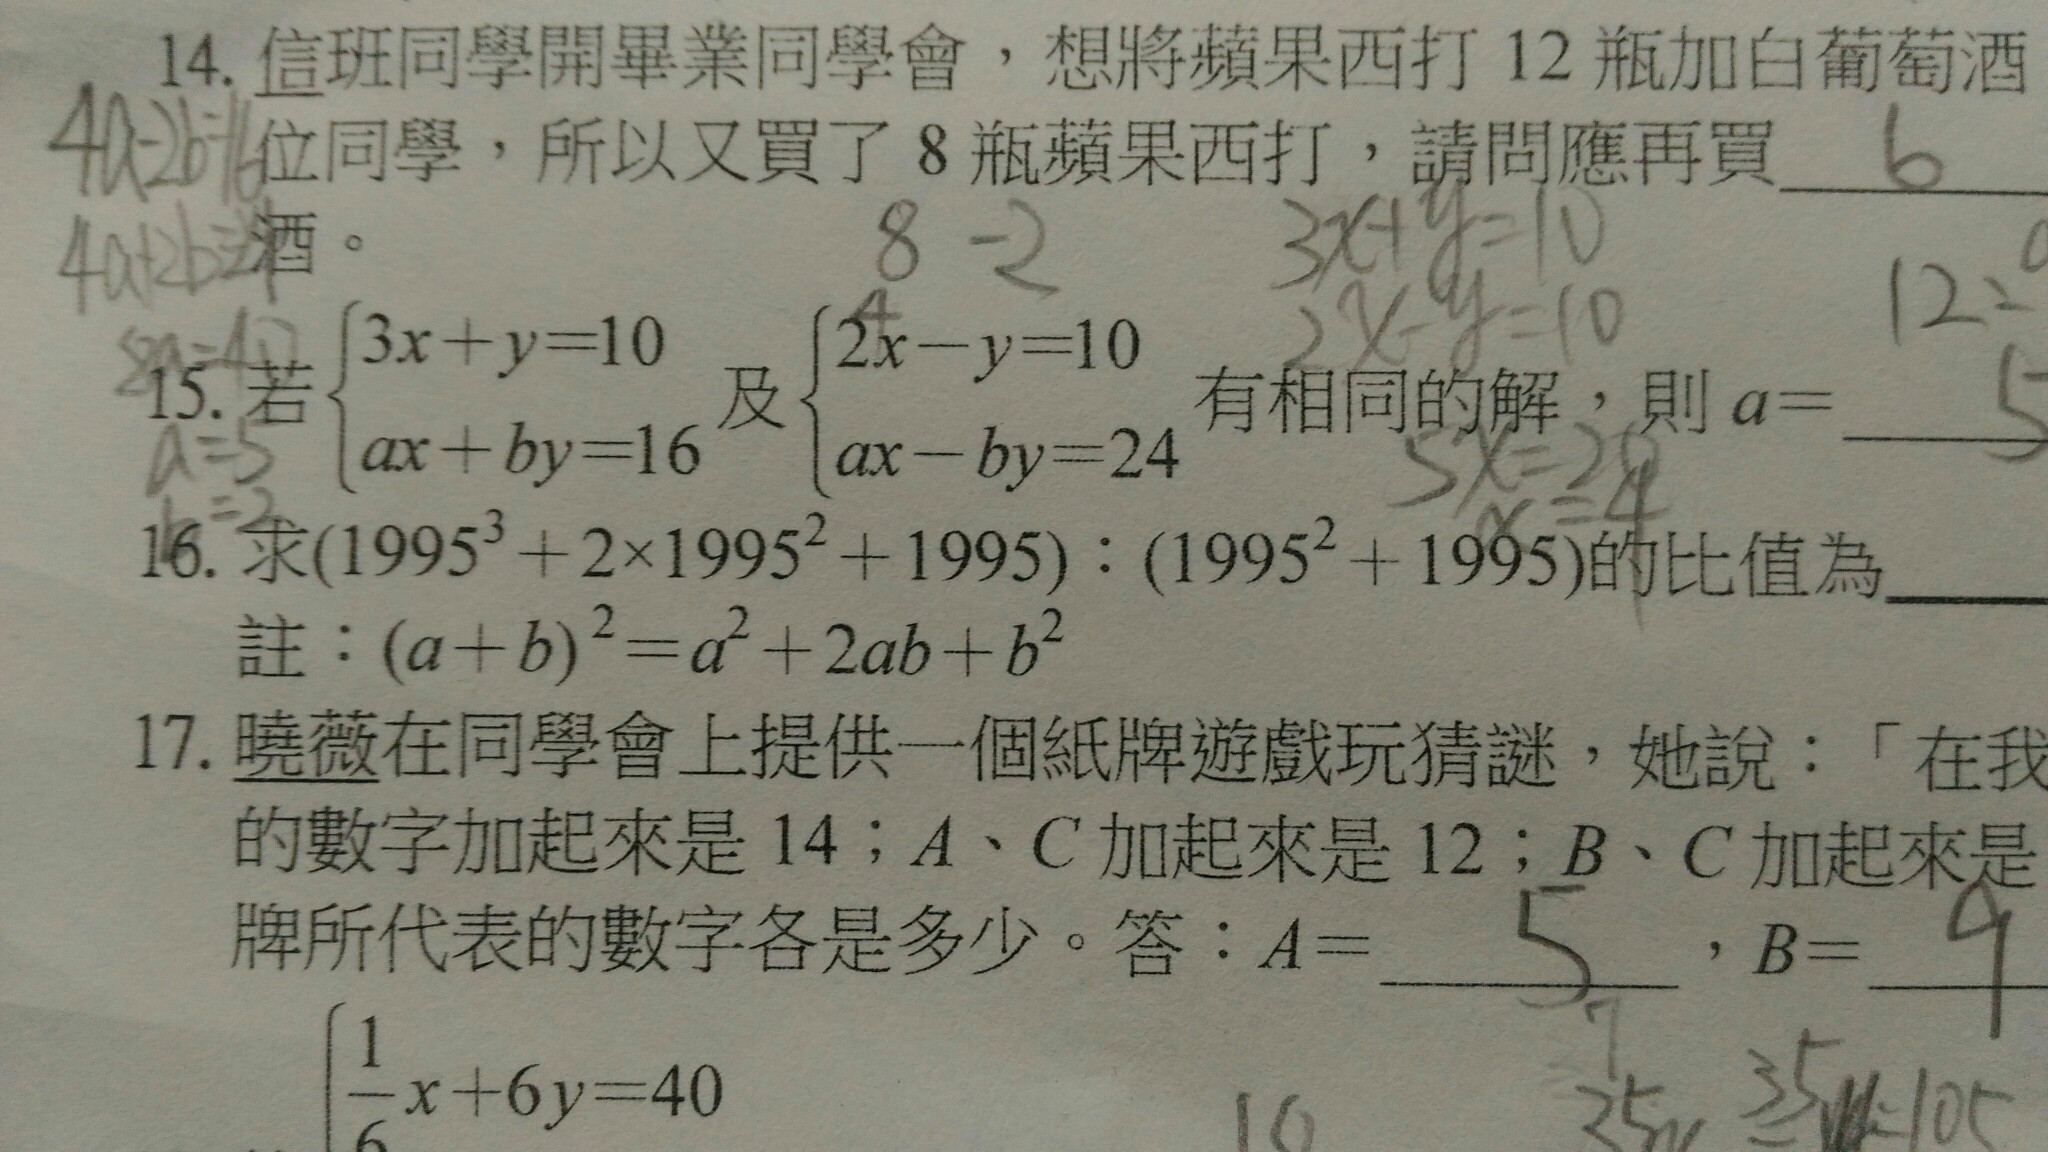 14. 信班同學開畢業同學會，想將蘋果西打 12 瓶加白葡萄酒
4a-2b=16
位同學，所以又買了 8 瓶蘋果西打，請問應再買 6
4a+2b=24
酒。
8 -2
3x+y=10
2x-y=10
12=
8a=40
4
15. 若 {3x+y=10 ax+by=16 及 {2x-y=10 ax-by=24 有相同的解，則 a= 5
a=5
5x=20
x=4
16. 求(1995³+2×1995²+1995)：(1995²+1995)的比值為
註：(a+b)²=a²+2ab+b²
17. 曉薇在同學會上提供一個紙牌遊戲玩猜謎，她說：「在我
的數字加起來是 14；A、C 加起來是 12；B、C 加起來是
牌所代表的數字各是多少。答：A= 5 ，B= 9
7
1/6 x+6y=40
10
35 =105